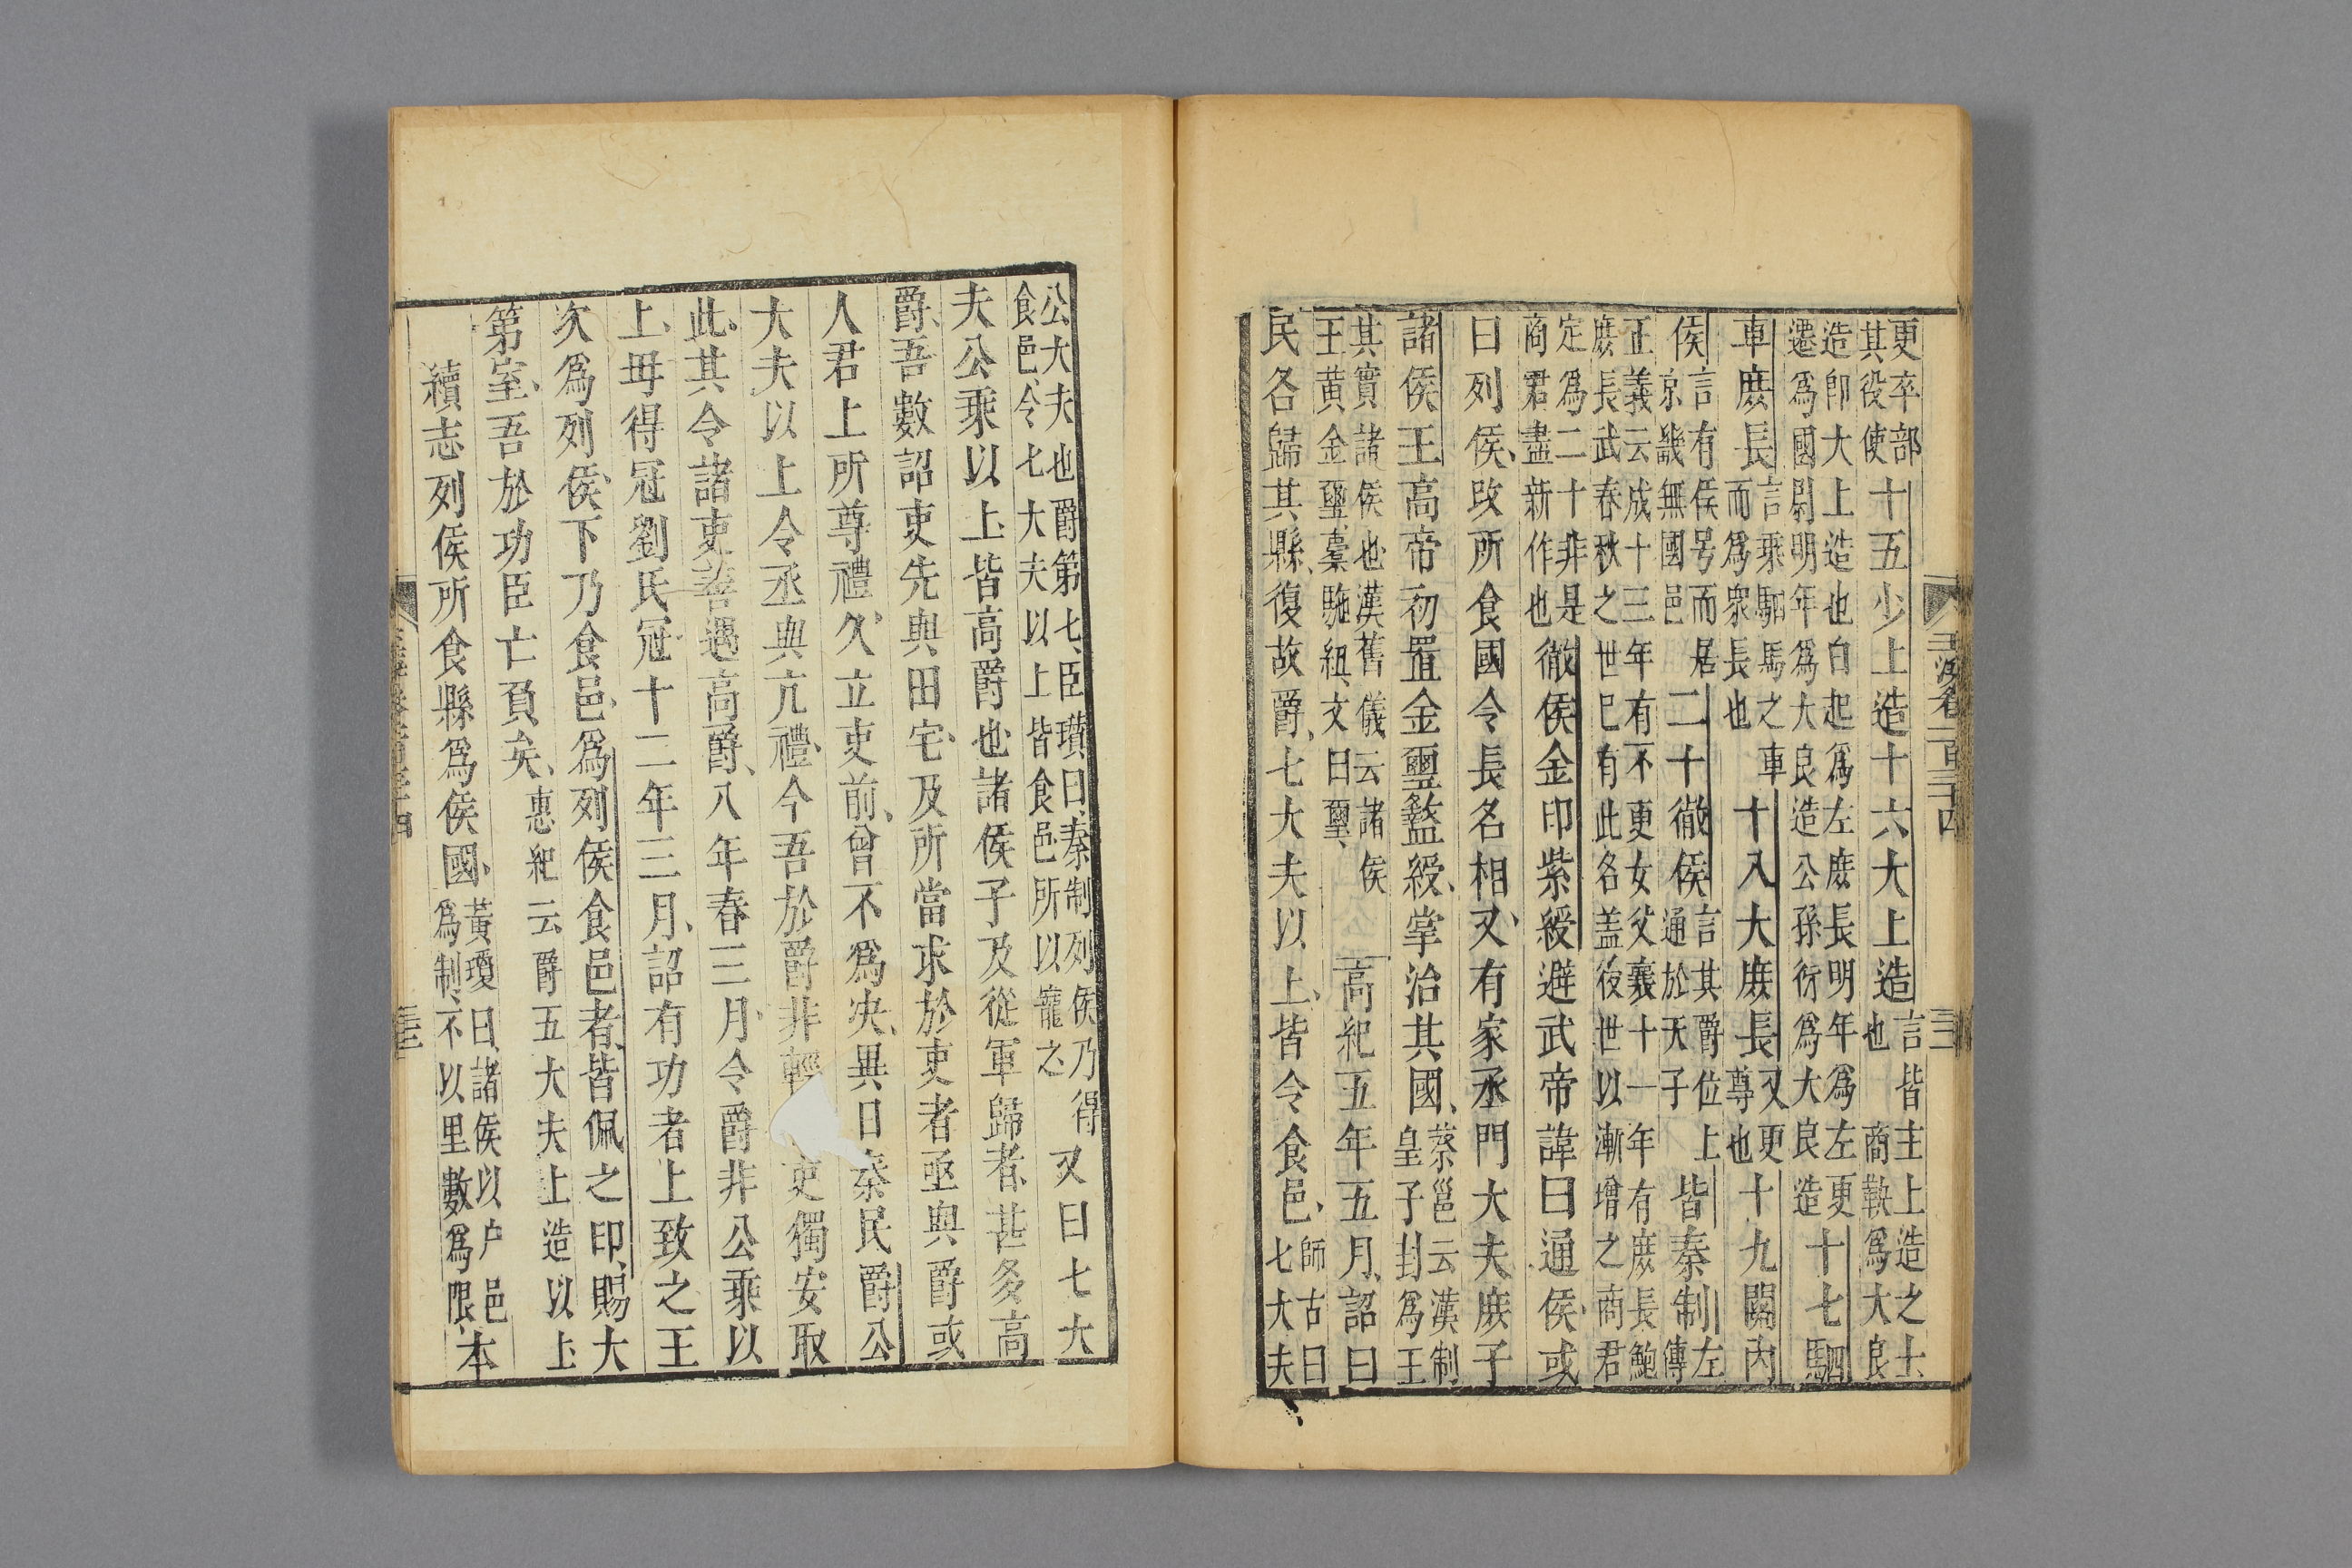 更卒部
其役使
十五少上造十六大上造
言皆主上造之士
也 商鞅爲大良
造卽大上造也白起爲左庶長明年爲左更
遷爲國尉明年爲大良造公孫衍爲大良造
十七駟
車庶長
言乘駟馬之車
而爲衆長也
十八大庶長
又更
尊也
十九關內
侯
言有侯号而居
京畿無國邑
二十徹侯
言其爵位上
通於天子
皆秦制
左
傳
正義云成十三年有不更女父襄十一年有庶長鮑
庶長武春秋之世已有此名蓋後世以漸增之商君
定爲二十非是
商君盡新作也
徹侯金印紫綬避武帝諱曰通侯或
曰列侯改所食國令長名相又有家丞門大夫庶子
諸侯王高帝初置金璽盭綬掌治其國
蔡邕云漢制
皇子封爲王
其實諸侯也漢舊儀云諸侯
王黃金璽橐駞紐文曰璽
高紀五年五月詔曰
民各歸其縣復故爵七大夫以上皆令食邑
師古曰
七大夫
公大夫也爵第七臣瓚曰秦制列侯乃得
食邑令七大夫以上皆食邑所以寵之
又曰七大
夫公乘以上皆高爵也諸侯子及從軍歸者甚多高
爵吾數詔吏先與田宅及所當求於吏者亟與爵或
人君上所尊禮久立吏前曾不爲決異日秦民爵公
大夫以上令丞與亢禮今吾於爵非輕吏獨安取
此其令諸吏善遇高爵八年春三月令爵非公乘以
上毋得冠劉氏冠十二年三月詔有功者上致之王
次爲列侯下乃食邑爲列侯食邑者皆佩之印賜大
第室吾於功臣亡負矣
惠紀云爵五大夫上造以上
續志列侯所食縣爲侯國
黃瓊曰諸侯以户邑
爲制不以里數爲限
本